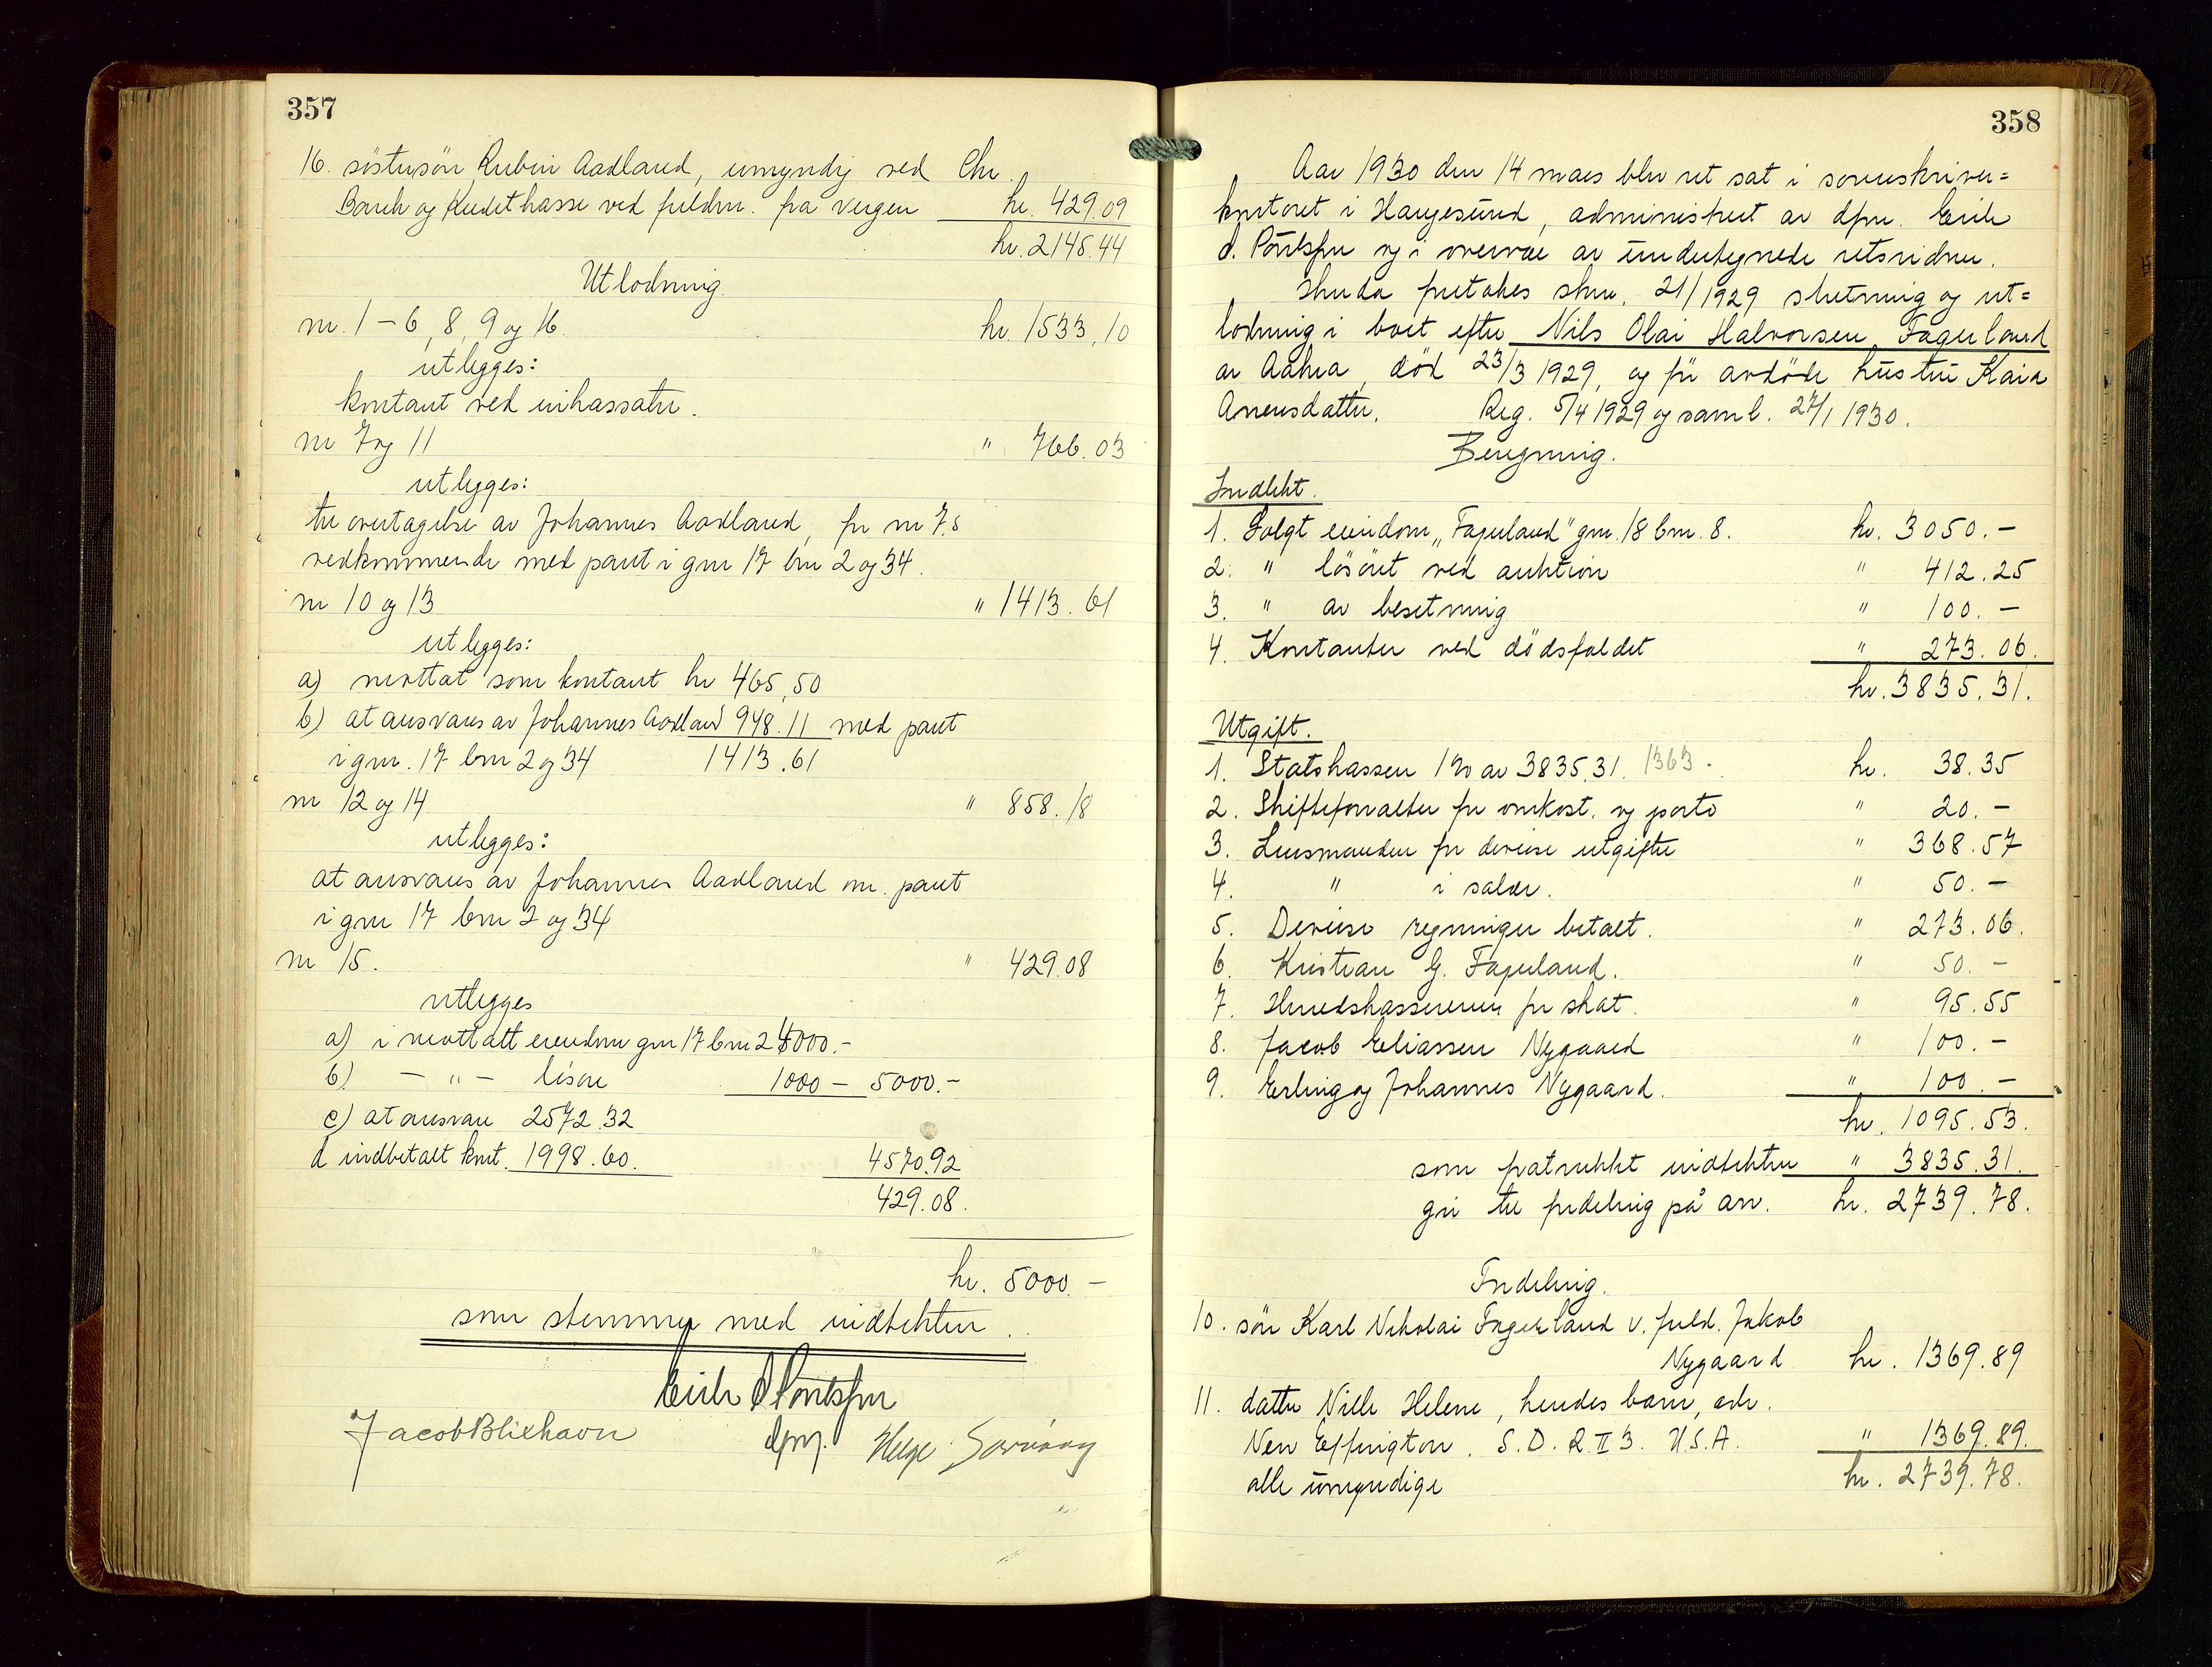 357
16. söstersön Rubin Aadland, umyndig ved Chr.
Bank og Kredittkasse ved fuldm. fra vergen kr. 429.09
kr. 2145.44
Utlodning
nr. 1 – 6, 8, 9 og 16. kr. 1533,10
utlegges:
kontant ved inkassator.
nr 7 og 11 " 766.03
utlegges:
til overtagelse av Johannes Aadland, for nr 7.s
vedkommende med pant i gnr 17 bnr 2 og 34.
nr 10 og 13 " 1413.61
utlegges:
a) mottat som kontant kr 465,50
b) at ansvares av Johannes Aadland 948.11 med pant
i gnr. 17 bnr 2 og 34 1413.61
nr 12 og 14 " 858.18
utlegges:
at ansvares av Johannes Aadland m. pant
i gnr 17 bnr 2 og 34
nr 15. " 429.08
utlegges
a) i mottatt eiendom gnr 17 bnr 2 4000.-
b) – " – lösöre 1000 – 5000.-
c) at ansvare 2572.32
d indbetalt knt. 1998.60. 4570.92
429.08.
kr. 5000.-
som stemmer med indtekten.
Eirik d. Poulsson
dfm.
Jacob Blikhavn
Helge
358
Aar 1930 den 14 mars blev ret sat i sorenskriver=
kontoret i Haugesund, administrert av dfm. Eirik
d. Poulsson og i overvær av undertegnede retsvidner.
Skuda foretokes skn. 21/1929 slutning og ut=
lodning i boet efter Nils Olai Halvorsen Fagerland
av Aakra, död 23/3 1929, og för avdöde hustru Kaia
Anensdatter. Reg. 5/4 1929 og saml. 27/1 1930.
Beregning.
Indtekt.
1. Solgt eiendom „Fagerland" gnr. 18 bnr. 8. kr. 3050.–
2. " lösöret ved auktion " 412.25
3. " av besetning " 100.–
4. Kontanter ved dödsfaldet " 273.06.
kr. 3835.31.
Utgift.
1. Statskassen 1% av 3835.31. 1363. kr. 38.35
2. Skifteforvalter for omkost. og porto " 20.–
3. Lensmanden for diverse utgifter " 368.57
4. " i salær. " 50.–
5. Diverse regninger betalt. " 273.06.
6. Kristian G. Fagerland. " 50.–
7. Herredskassereren for skat. " 95.55
8. Jacob Eliassen Nygaard " 100.–
9. Erling og Johannes Nygaard. " 100.–
kr. 1095.53.
som fratrukket indtekten " 3835.31.
gir til fordeling på arv. kr. 2739.78.
Fordeling.
10. sön Karl Nikolai Fagerland v. fuld. Jakob
Nygaard kr. 1369.89
11. datter Nille Helene, hendes barn, adr.
New Effington. S.D. R.II 3. U.S.A. " 1369.89.
alle umyndige kr. 2739.78.